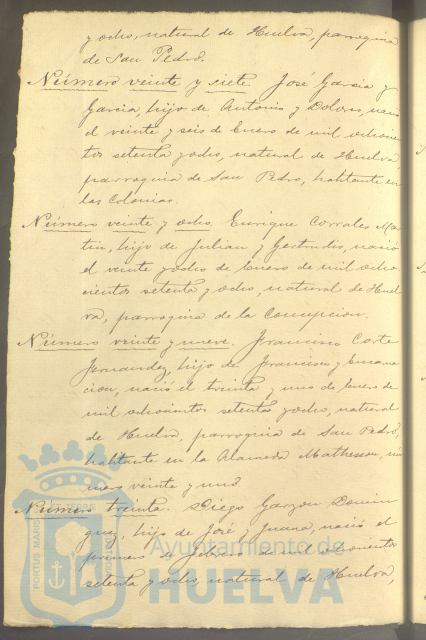 y ocho, natural de Huelva, parroquia
de San Pedro.
Número veinte y siete. José García y
García, hijo de Antonio y Dolores, nació
el veinte y seis de Enero de mil ochocien
tos setenta y ocho, natural de Huelva,
parroquia de San Pedro, habitante en
las Colonias.
Número veinte y ocho. Enrique Corrales Mar
tin, hijo de Julian y Gertrudis, nació
el veinte y ocho de Enero de mil ocho
cientos setenta y ocho, natural de Huel
va, parroquia de la Concepcion.
Número veinte y nueve. Francisco Corte
Fernandez, hijo de Francisco y Encarna
cion, nació el treinta y uno de Enero de
mil ochocientos setenta y ocho, natural
de Huelva, parroquia de San Pedro,
habitante en la Alameda Matheson, nú
mero veinte y uno
Número treinta. Diego Garzon Domin
guez, hijo de José y Juana, nació el
primero de Febrero de mil ochocientos
setenta y ocho, natural de Huelva,
PORTUS MARIS
Ayuntamiento de
HUELVA